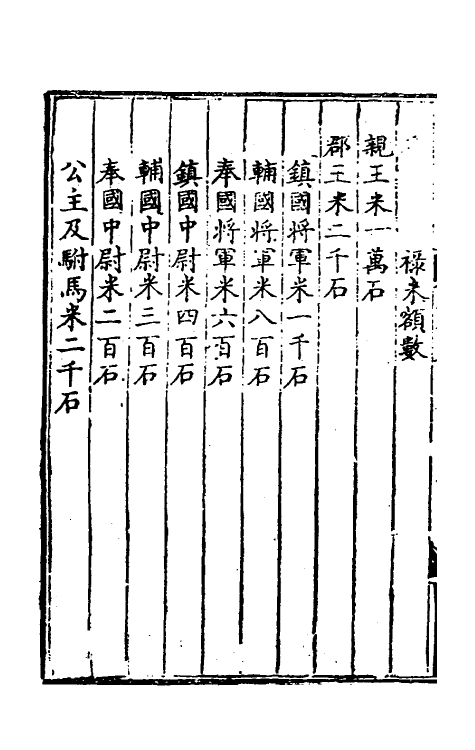 祿米額數
親王米一萬石
郡王米二千石
鎮國將軍米一千石
輔國將軍米八百石
奉國將軍米六百石
鎮國中尉米四百石
輔國中尉米三百石
奉國中尉米二百石
公主及駙馬米二千石